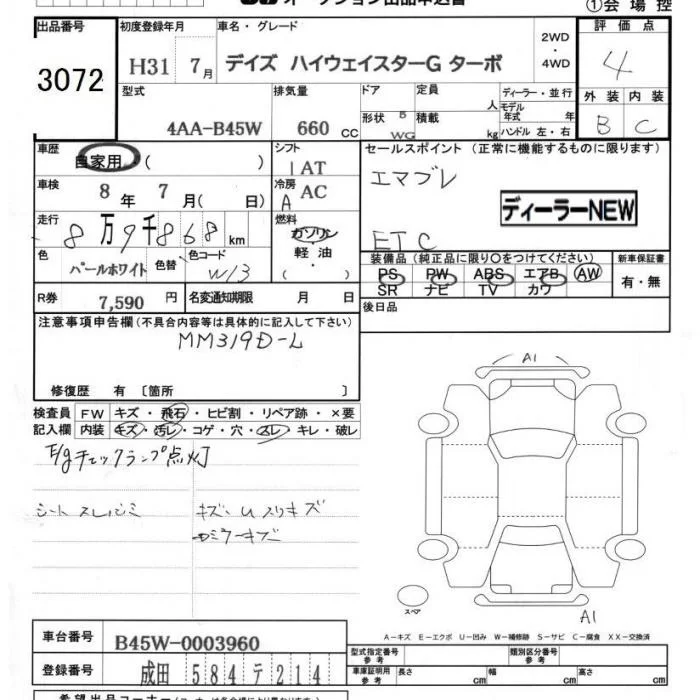 オークション出品申込書
①会場控
出品番号 初度登録年月 車名・グレード 評価点
3072 H31 7月 デイズ ハイウェイスターG ターボ 2WD・4WD 4
型式 排気量 ドア 定員 ディーラー・並行 外装 内装
4AA-B45W 660 cc 5 人 モデル年式 年式 B C
形状 WG 積載 kg ハンドル 左・右
車歴 自家用 ( ) シフト セールスポイント (正常に機能するものに限ります)
IAT エマブレ
車検 8年 7月(日) 冷房 AC ディーラーNEW
走行 8万9千868km 燃料 ガソリン ETC
軽油
( )
色 パールホワイト 色替 色コード W13
装備品 (純正品に限り○をつけてください) 新車保証書
PS PW ABS エアB AW 有・無
SR ナビ TV カワ
R券 7,590円 名変通知期限 月 日 後日品
注意事項申告欄(不具合内容等は具体的に記入して下さい)
MM319D-L
修復歴 有 〔箇所 〕
検査員 FW キズ・飛石・ヒビ割・リペア跡・×要
記入欄 内装 キズ・汚レ・コゲ・穴・スレ・キレ・破レ
E/gチェックランプ点灯
シート スレ シミ
A1
スペア
A1
A-キズ E-エクボ U-凹み W-補修跡 S-サビ C-腐食 XX-交換済
車台番号 B45W-0003960
型式指定番号 参考 類別区分番号 参考
登録番号 成田 584 テ 214
車庫証明用 参考 長さ cm 幅 cm 高さ cm
希望出品コーナー